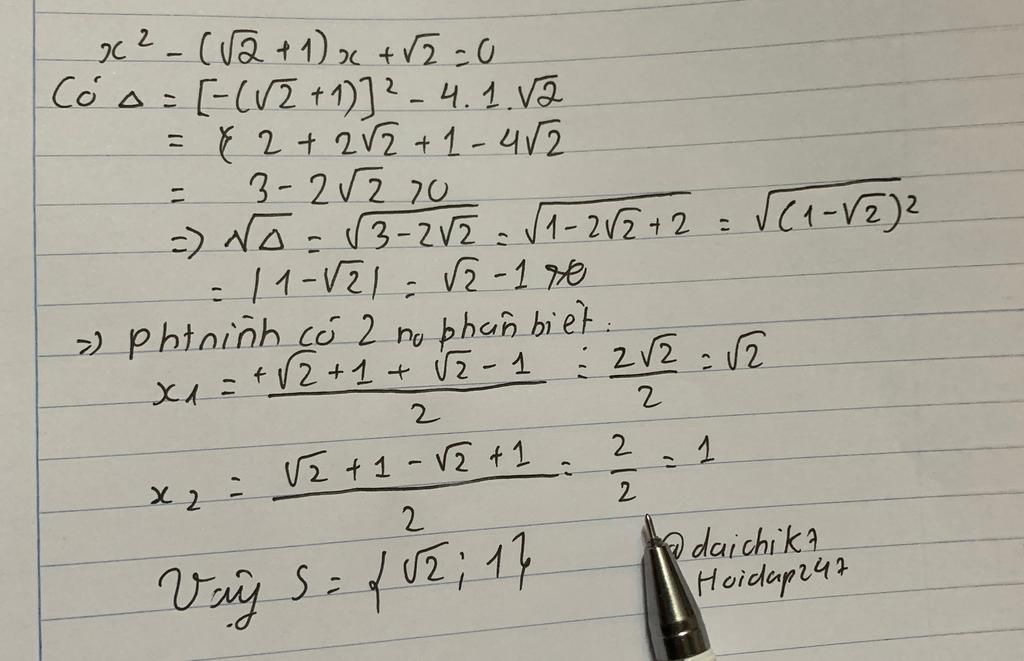 x² - (√2 + 1)x + √2 = 0
Có Δ = [-(√2 + 1)]² - 4.1.√2
= 2 + 2√2 + 1 - 4√2
= 3 - 2√2 > 0
=> √Δ = √(3 - 2√2) = √(1 - 2√2 + 2) = √((1 - √2)²)
= |1 - √2| = √2 - 1
=> phtrình có 2 no phân biệt:
x1 = (+√2 + 1 + √2 - 1)/2 = 2√2/2 = √2
x2 = (√2 + 1 - √2 + 1)/2 = 2/2 = 1
Vậy S = {√2; 1}
@daichik7
Hoidap247